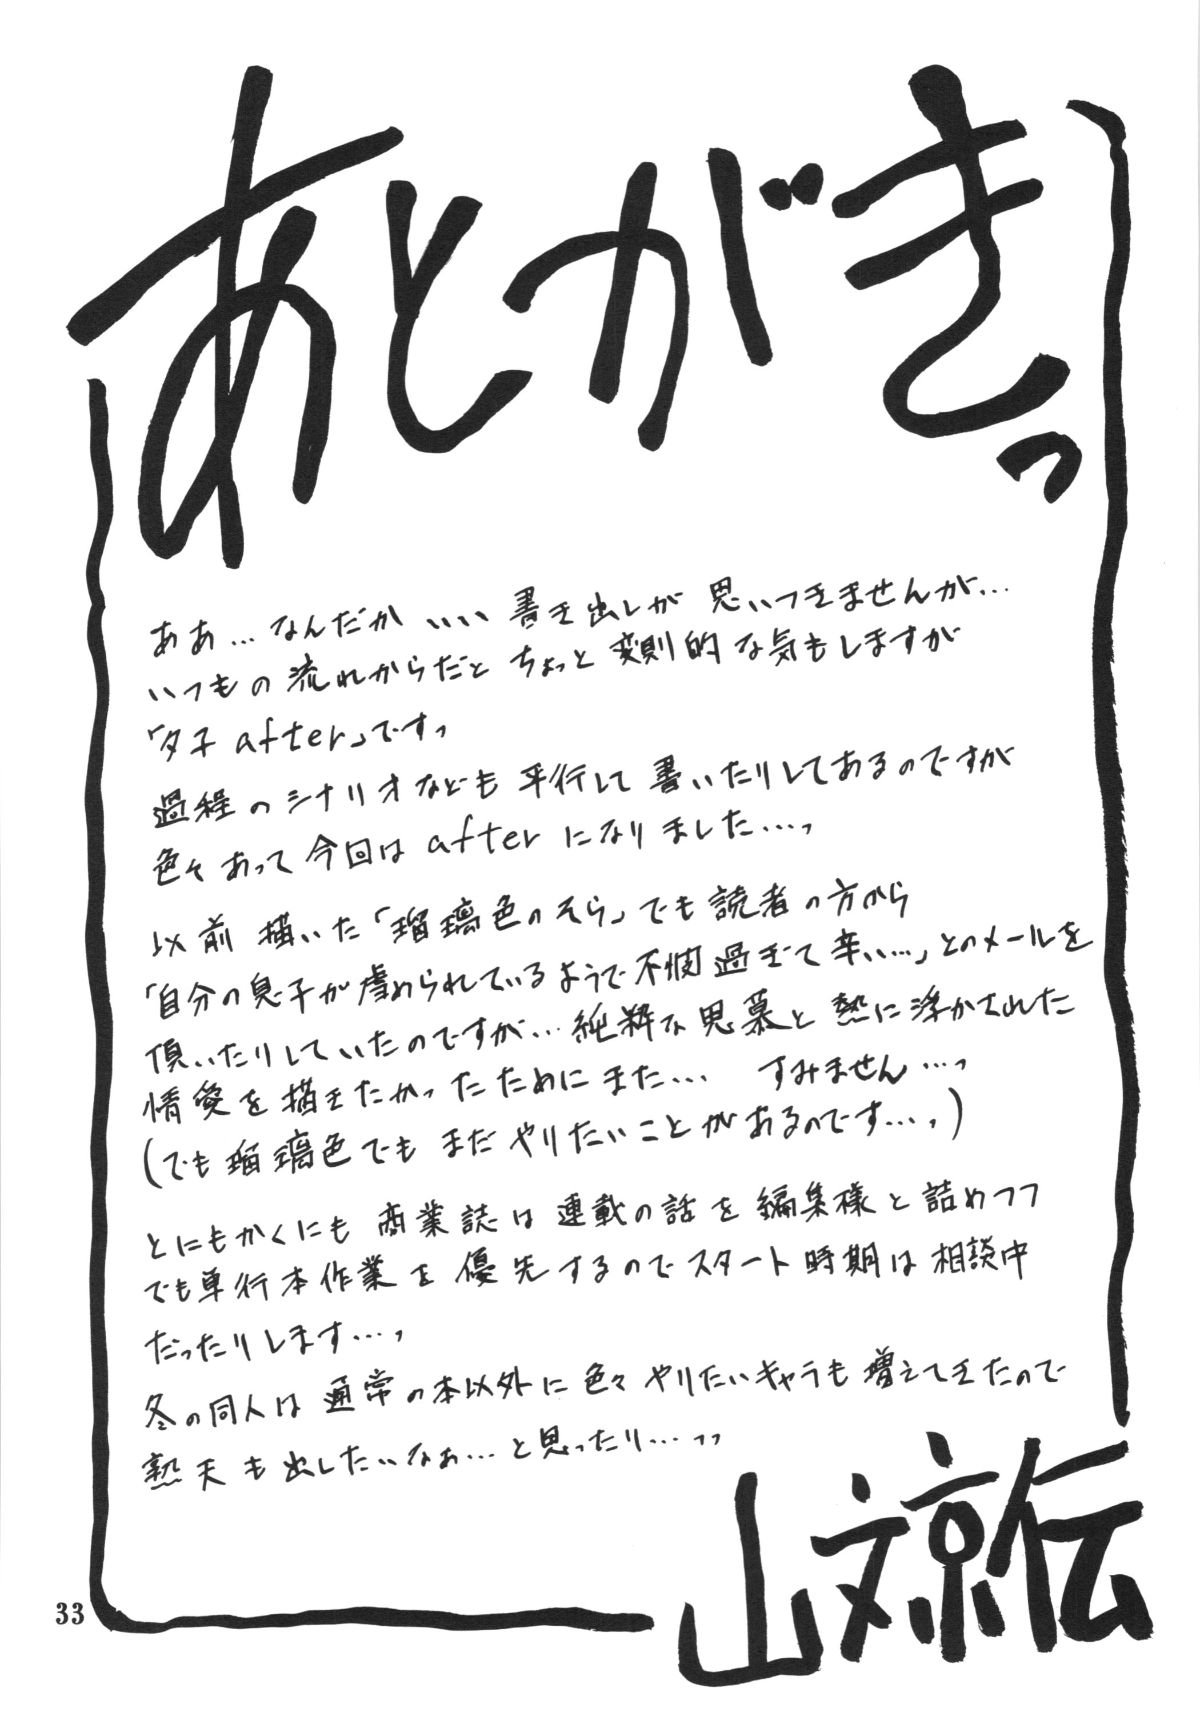 あとがきっ
ああ…なんだか いい 書き出しが 思いつきませんが…
いつもの 流れからだと ちょっと 変則的 な気もしますが
「夕子 after」ですっ
過程のシナリオなども 平行して 書いたりしてあるのですが
色々 あって 今回は after になりました…っ
以前 描いた「瑠璃色のそら」でも読者の方から
「自分の息子が虐められているようで不憫過ぎて辛い…」とのメールを
頂いたりしていたのですが…純粋な思慕と 熱に浮かされた
情愛を描きたかったためにまた… すみません…っ
(でも瑠璃色でも まだ やりたいことがあるのです…っ)
とにもかくにも 商業誌は 連載の話を編集様と詰めつつ
でも単行本作業を優先するのでスタート時期は相談中
だったりします…っ
冬の同人は 通常の本以外に色々やりたいキャラも増えてきたので
熟天も出したいなぁ…と思ったり…っっ
山文京伝
33